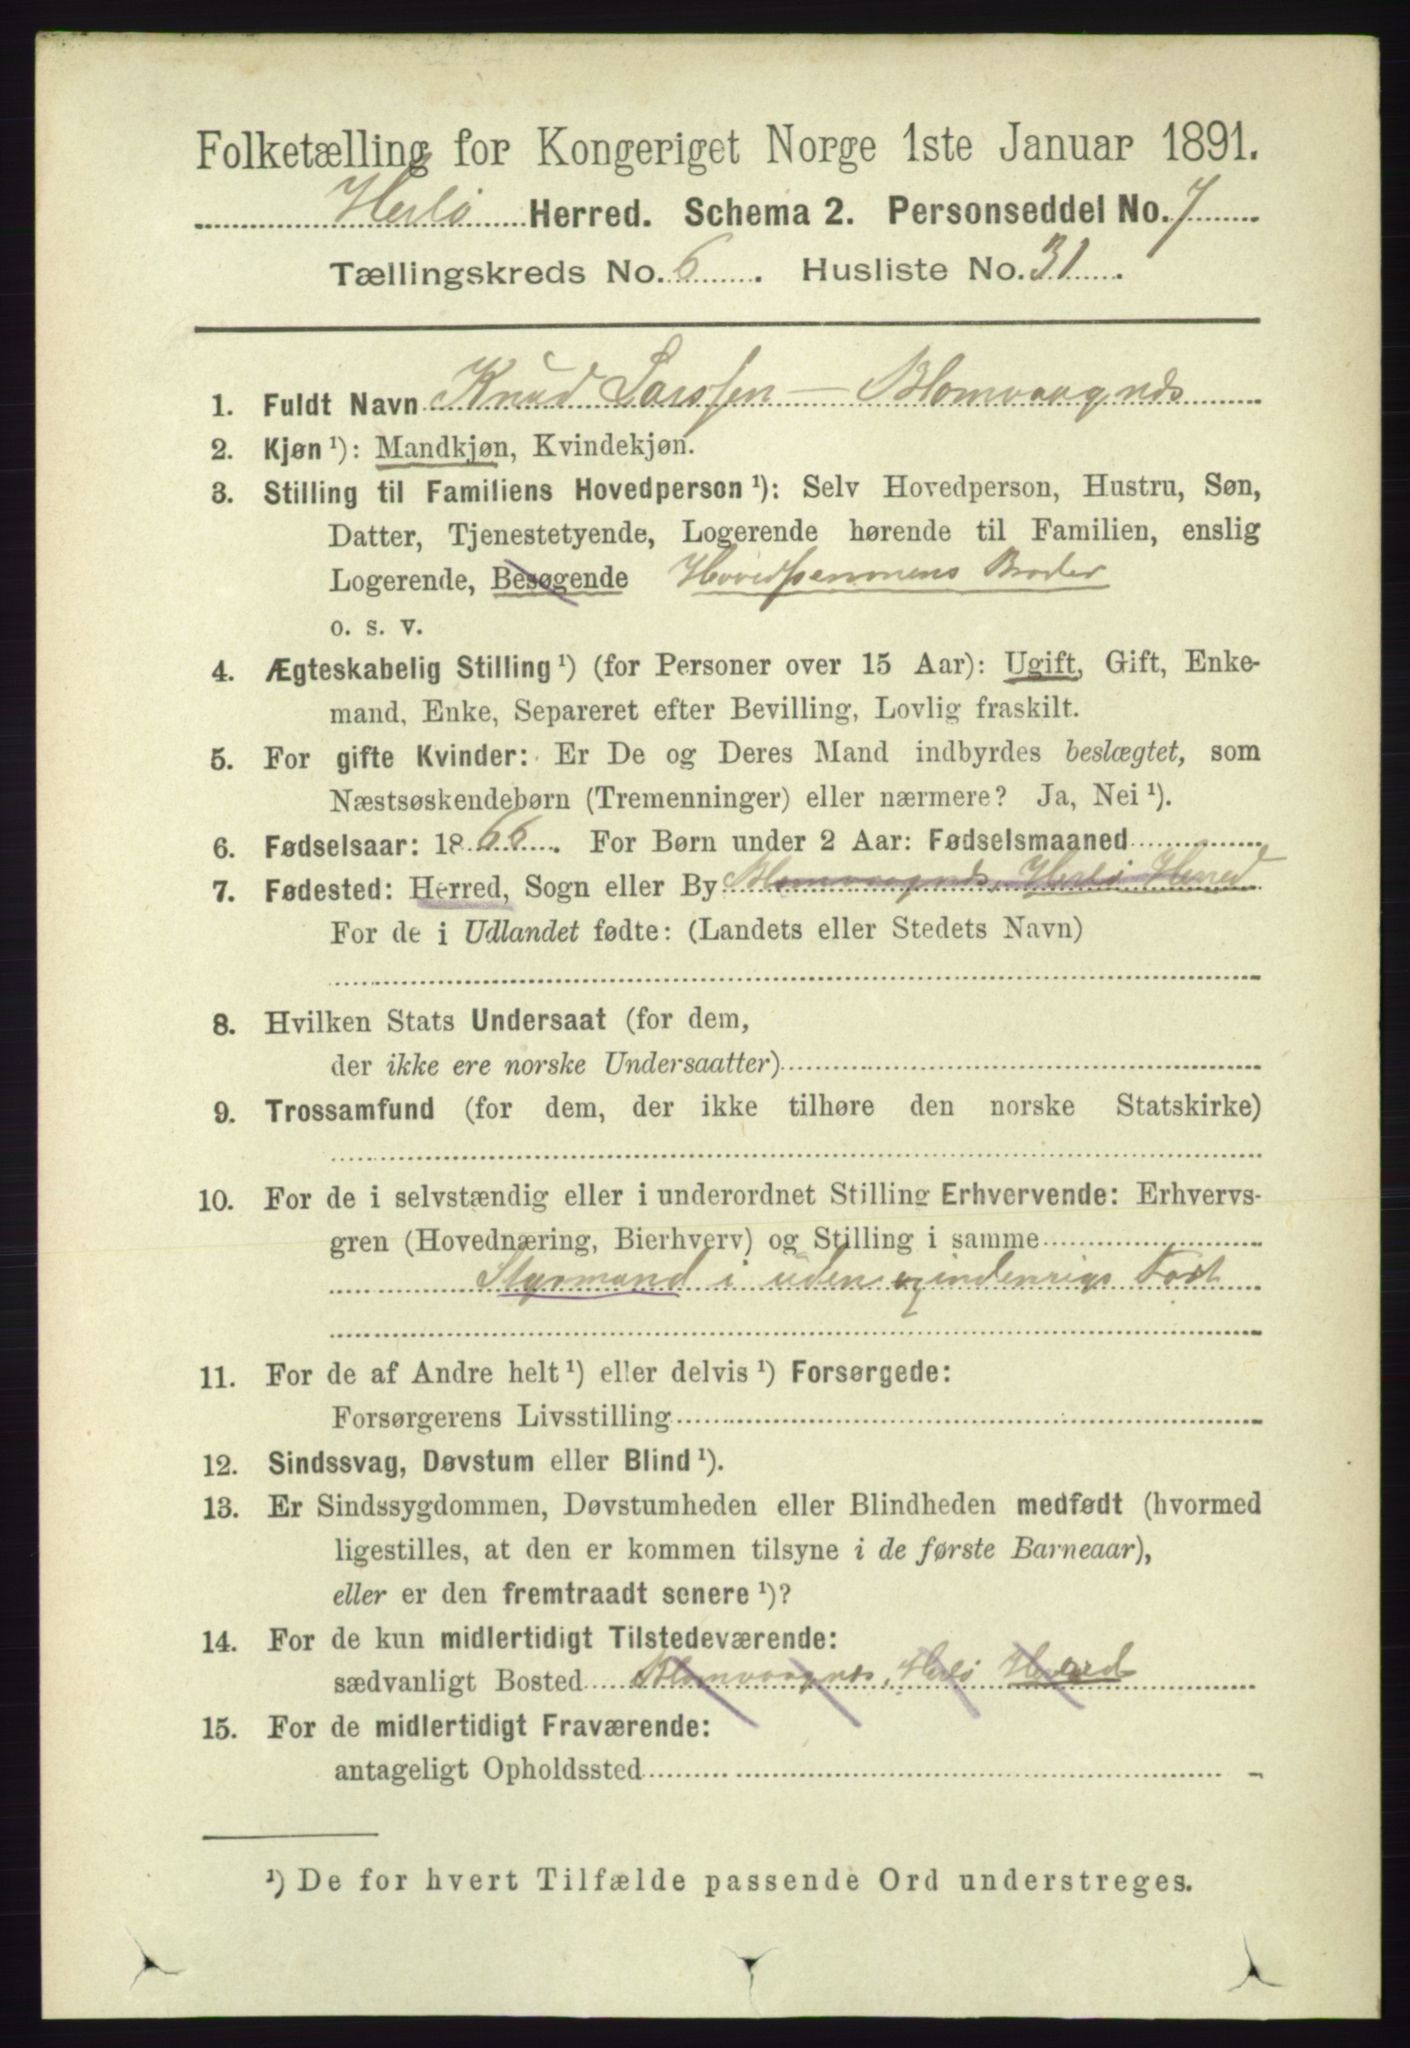 Folketælling for Kongeriget Norge 1ste Januar 1891.
Herlø Herred. Schema 2. Personseddel No. 7
Tællingskreds No. 6. Husliste No. 31.
1. Fuldt Navn Knud Larssen — Blomvaagnes
2. Kjøn¹): Mandkjøn, Kvindekjøn.
3. Stilling til Familiens Hovedperson¹): Selv Hovedperson, Hustru, Søn,
Datter, Tjenestetyende, Logerende hørende til Familien, enslig
Logerende, Besøgende Hovedpersonens Broder
o. s. v.
4. Ægteskabelig Stilling¹) (for Personer over 15 Aar): Ugift, Gift, Enke-
mand, Enke, Separeret efter Bevilling, Lovlig fraskilt.
5. For gifte Kvinder: Er De og Deres Mand indbyrdes beslægtet, som
Næstsøskendebørn (Tremenninger) eller nærmere? Ja, Nei¹).
6. Fødselsaar: 1866. For Børn under 2 Aar: Fødselsmaaned
7. Fødested: Herred, Sogn eller By Blomvaagnes, Herlø Herred
For de i Udlandet fødte: (Landets eller Stedets Navn)
8. Hvilken Stats Undersaat (for dem,
der ikke ere norske Undersaatter)
9. Trossamfund (for dem, der ikke tilhøre den norske Statskirke)
10. For de i selvstændig eller i underordnet Stilling Erhvervende: Erhvervs-
gren (Hovednæring, Bierhverv) og Stilling i samme
Styrmand i uden og indenrigs Fart
11. For de af Andre helt¹) eller delvis¹) Forsørgede:
Forsørgerens Livsstilling
12. Sindssvag, Døvstum eller Blind¹).
13. Er Sindssygdommen, Døvstumheden eller Blindheden medfødt (hvormed
ligestilles, at den er kommen tilsyne i de første Barneaar),
eller er den fremtraadt senere¹)?
14. For de kun midlertidigt Tilstedeværende:
sædvanligt Bosted Blomvaagnes, Herlø Herred
15. For de midlertidigt Fraværende:
antageligt Opholdssted
¹) De for hvert Tilfælde passende Ord understreges.